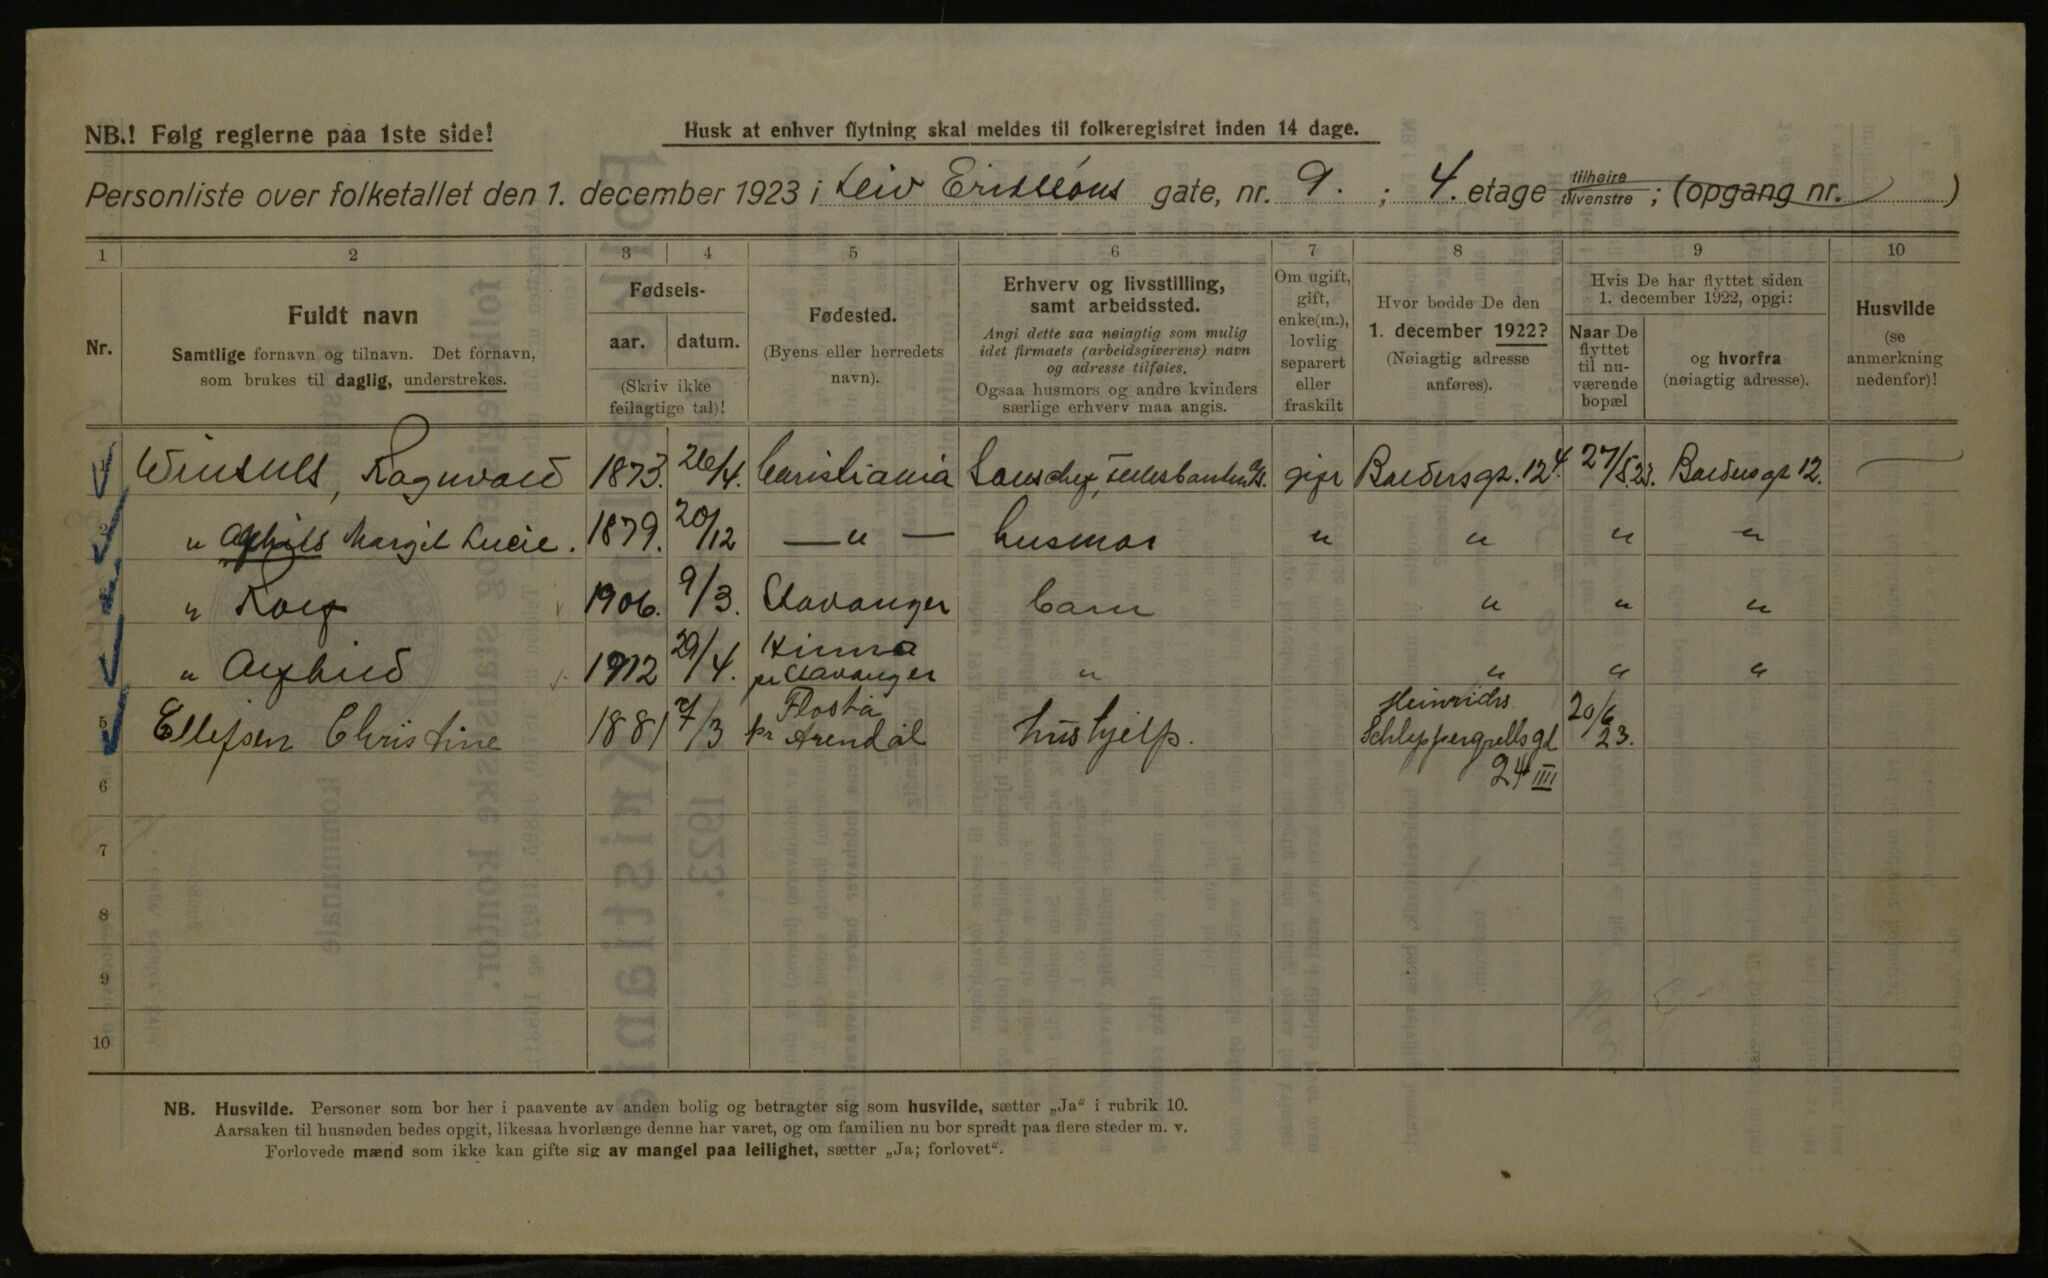 NB.! Følg reglerne paa 1ste side!
Husk at enhver flytning skal meldes til folkeregistret inden 14 dage.
Personliste over folketallet den 1. december 1923 i Leiv Erikssøns gate, nr. 9. ; 4. etage tilhøire tilvenstre ; (opgang nr. )
1 2 3 4 5 6 7 8 9 10
Nr.
Fuldt navn
Samtlige fornavn og tilnavn. Det fornavn,
som brukes til daglig, understrekes.
Fødsels-
aar. datum.
(Skriv ikke
feilagtige tal)!
Fødested.
(Byens eller herredets
navn).
Erhverv og livsstilling,
samt arbeidssted.
Angi dette saa nøiagtig som mulig
idet firmaets (arbeidsgiverens) navn
og adresse tilføies.
Ogsaa husmors og andre kvinders
særlige erhverv maa angis.
Om ugift,
gift,
enke(m.),
lovlig
separert
eller
fraskilt
Hvor bodde De den
1. december 1922?
(Nøiagtig adresse
anføres).
Hvis De har flyttet siden
1. december 1922, opgi:
Naar De
flyttet
til nu-
værende
bopæl
og hvorfra
(nøiagtig adresse).
Husvilde
(se
anmerkning
nedenfor)!
Ragnvald 1873. 26/4. Christiania gift Baldersgt. 12 4. 27/5.23. Baldersgt 12.
2 " Margit Lucie. 1879. 20/12 — " — husmor " " " "
3 " Rolf 1906. 9/3. Stavanger barn " " "
" Alfhild 1912 29/4. Hinna pr Stavanger " " " "
5 Ellefsen Christine 1881 7/3 Flosta pr Arendal hushjelp. Heinrichs Schleppergrellsgt 24 IIII 20/6 23.
6
7
8
9
10
NB. Husvilde. Personer som bor her i paavente av anden bolig og betragter sig som husvilde, sætter „Ja“ i rubrik 10.
Aarsaken til husnøden bedes opgit, likesaa hvorlænge denne har varet, og om familien nu bor spredt paa flere steder m. v.
Forlovede mænd som ikke kan gifte sig av mangel paa leilighet, sætter „Ja; forlovet“.